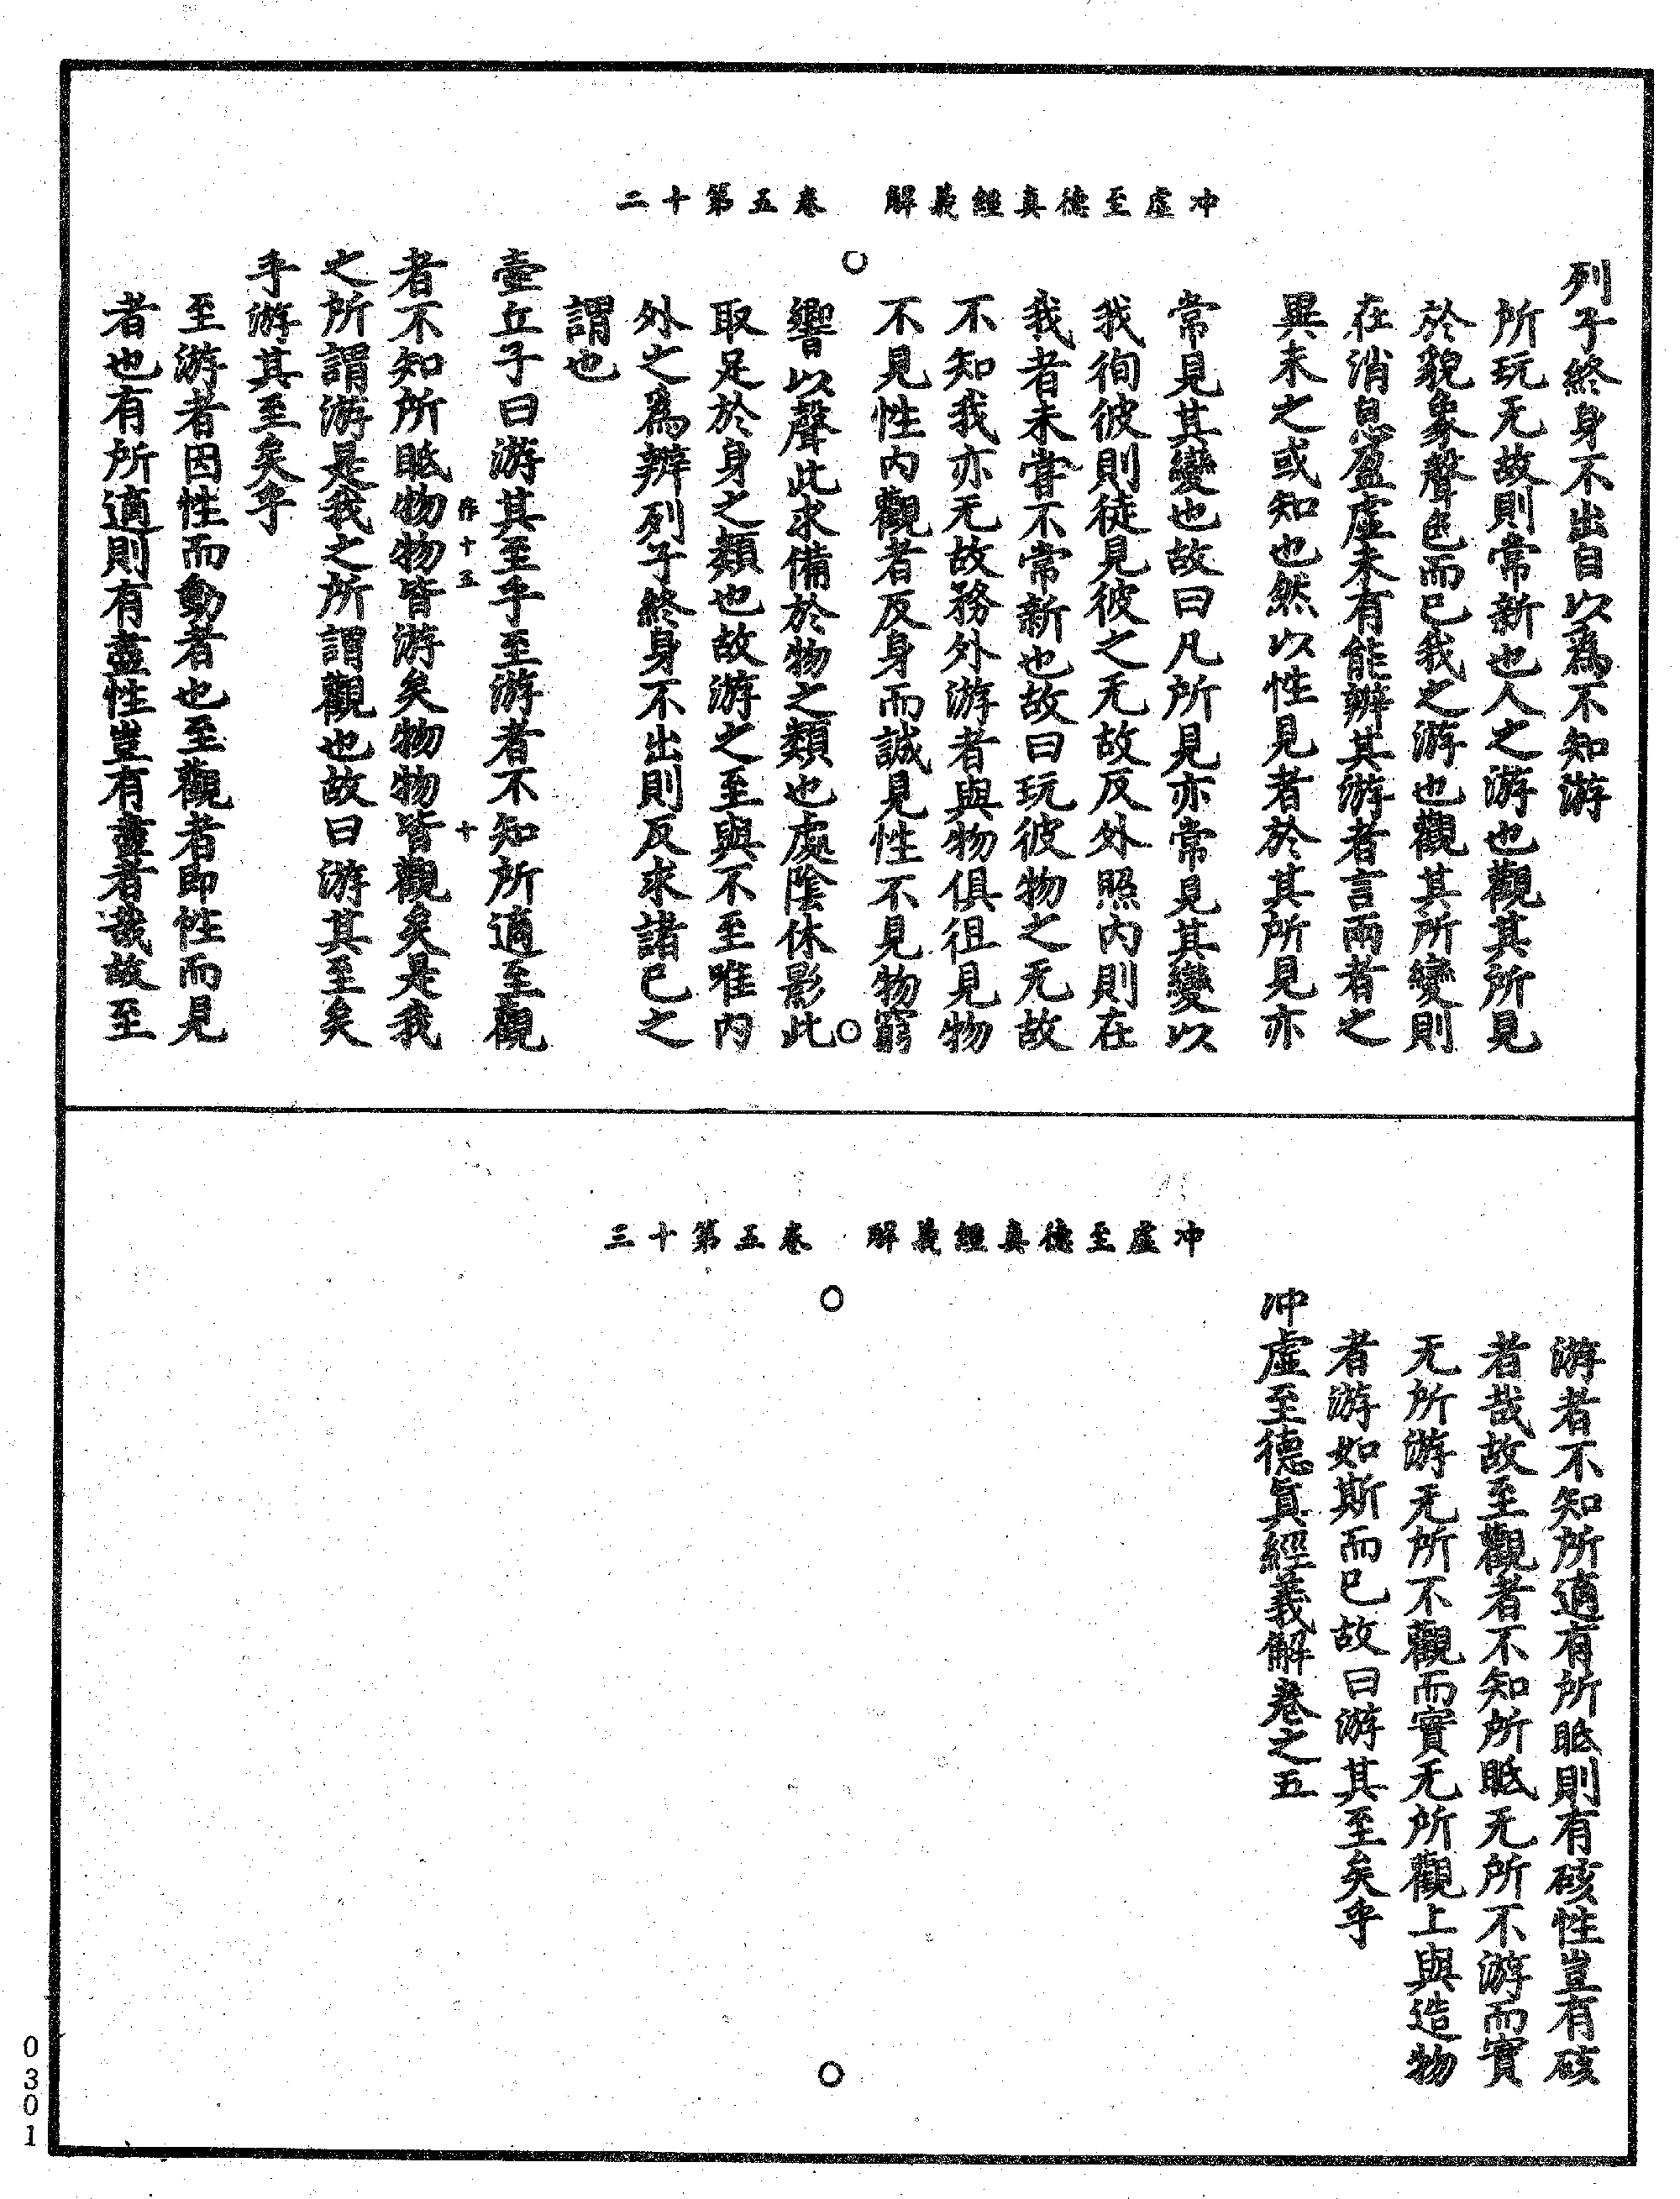 冲虛至德真經義解　卷五第十二
列子終身不出自以為不知游
所玩无故則常新也人之游也觀其所見
於貌象聲色而已我之游也觀其所變則
在消息盈虛未有能辨其游者言兩者之
異未之或知也然以性見者於其所見亦
常見其變也故曰凡所見亦常見其變以
我徇彼則徒見彼之无故反外照內則在
我者未嘗不常新也故曰玩彼物之无故
不知我亦无故務外游者與物俱徂見物
不見性內觀者反身而誠見性不見物窮
響以聲此求備於物之類也處陰休影此
取足於身之類也故游之至與不至唯內
外之為辨列子終身不出則反求諸已之
謂也
壺丘子曰游其至乎至游者不知所適至觀
者不知所眂物物皆游矣物物皆觀矣是我
之所謂游是我之所謂觀也故曰游其至矣
乎游其至矣乎
至游者因性而動者也至觀者即性而見
者也有所適則有盡性豈有盡者哉故至
冲虛至德真經義解　卷五第十三
游者不知所適有所眂則有硋性豈有硋
者哉故至觀者不知所眂无所不游而實
无所游无所不觀而實无所觀上與造物
者游如斯而已故曰游其至矣乎
冲虛至德真經義解卷之五
0301